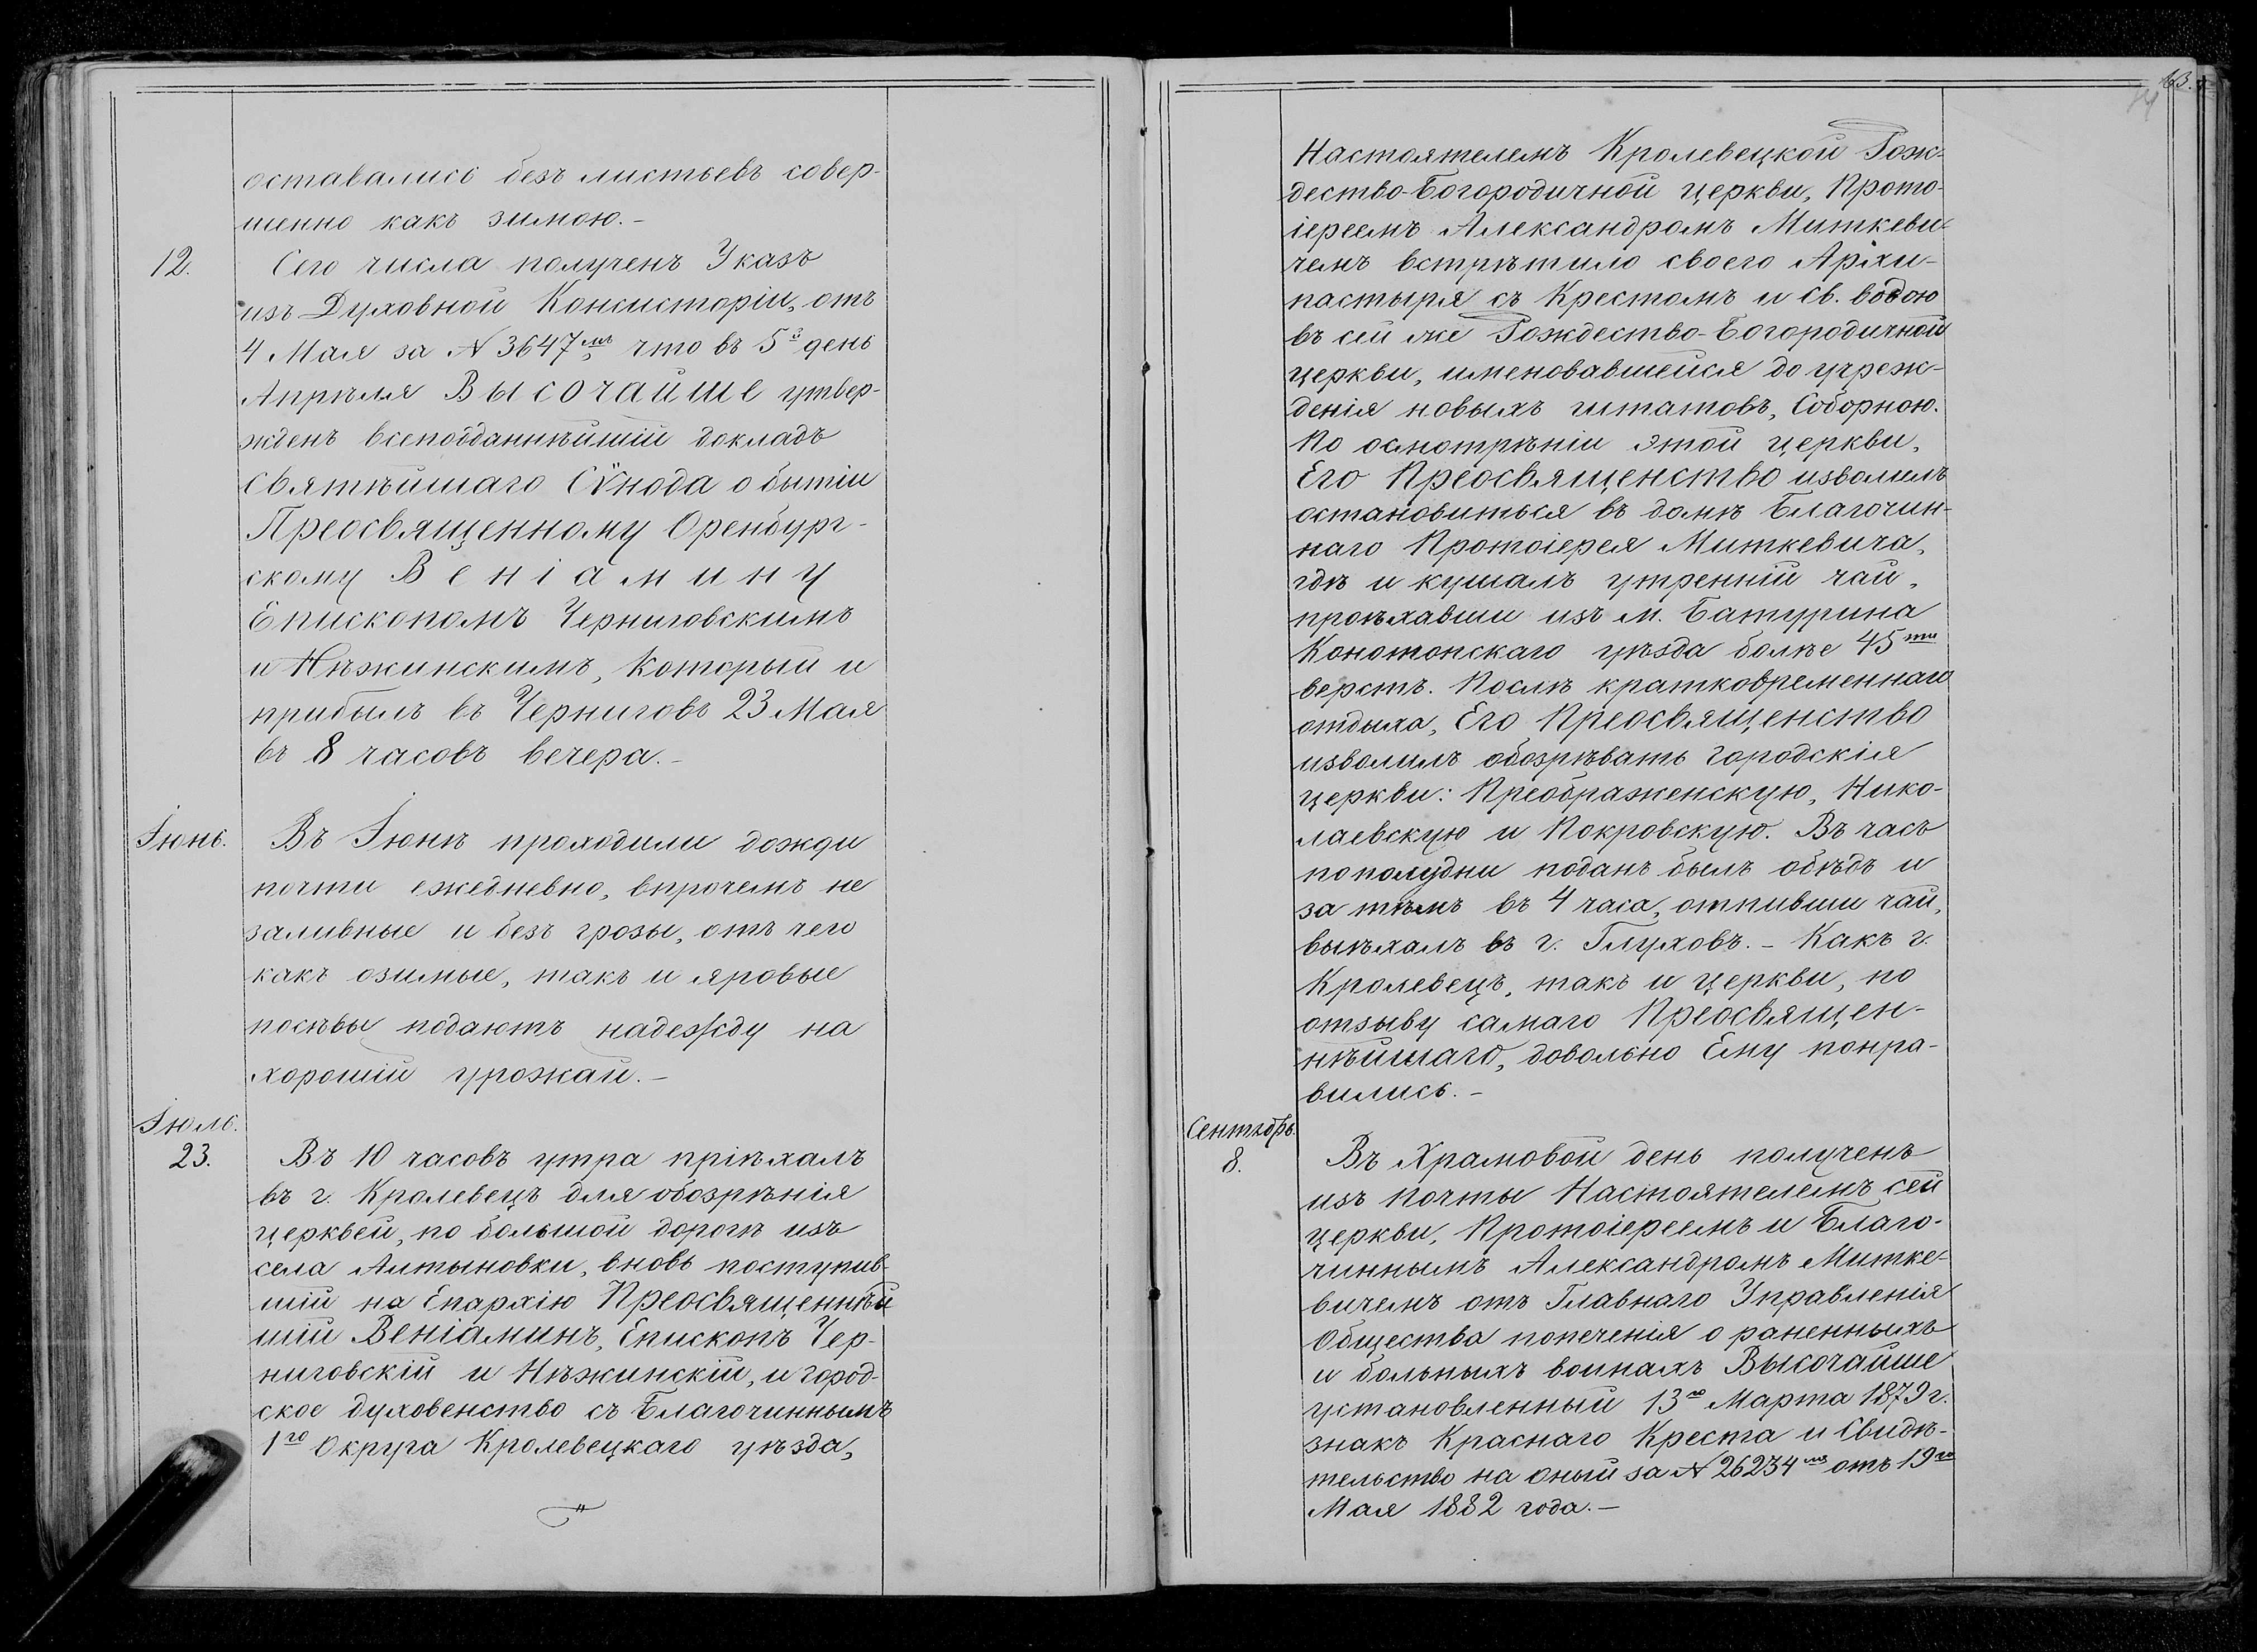 оставались безъ листьевъ совер-
шенно какъ зимою.-
12. Сего числа полученъ Указъ
изъ Духовной Консисторіи, отъ
4 Мая за № 3647мъ, что въ 5й день
Апрѣля Высочайше утвер-
жденъ всеподданнѣйшій докладъ
Святѣйшаго Сѵнода о бытіи
Преосвященному Оренбург-
скому Веніамину
Епископомъ Черниговскимъ
и Нѣжинскимъ, который и
прибылъ въ Черниговъ 23 Мая
въ 8 часовъ вечера.-
Іюнь. Въ Іюнѣ проходили дожди
почти ежедневно, впрочемъ не
заливные и безъ грозы, отъ чего
какъ озимые, такъ и яровые
посѣвы подаютъ надежду на
хорошій урожай.-
Іюль.
23. Въ 10 часовъ утра пріѣхалъ
въ г. Кролевецъ для обозрѣнія
церквей, по большой дорогѣ изъ
села Алтыновки, вновь поступив-
шій на Епархію Преосвященнѣй
шій Веніаминъ, Епископъ Чер-
ниговскій и Нѣжинскій, и город-
ское духовенство съ Благочиннымъ
1го Округа Кролевецкаго уѣзда,
63.
74
Настоятелемъ Кролевецкой Рож-
дество-Богородичной церкви, Прото-
іереемъ Александромъ Миткеви-
чемъ встрѣтило своего Архи-
пастыря съ Крестомъ и св. водою
въ сей же Рождество-Богородичной
церкви, именовавшейся до учреж-
денія новыхъ штатовъ, Соборною.
По осмотрѣніи этой церкви,
Его Преосвященство изволилъ
остановиться въ домѣ Благочин-
наго Протоіерея Миткевича,
гдѣ и кушалъ утренній чай,
проѣхавши изъ м. Батурина
Конотопскаго уѣзда болѣе 45ти
верстъ. Послѣ кратковременнаго
отдыха, Его Преосвященство
изволилъ обозрѣвать городскія
церкви: Преображенскую, Нико-
лаевскую и Покровскую. Въ часъ
пополудни поданъ былъ обѣдъ и
за тѣмъ въ 4 часа, отпивши чай,
выѣхалъ въ г. Глуховъ.- Какъ г.
Кролевецъ, такъ и церкви, по
отзыву самаго Преосвящен-
нѣйшаго, довольно Ему понра-
вились.-
Сентябрь.
8. Въ Храмовой день полученъ
изъ почты Настоятелемъ сей
церкви, Протоіереемъ и Благо-
чиннымъ Александромъ Митке-
вичемъ отъ Главнаго Управленія
Общества попеченія о раненныхъ
и больныхъ воинахъ Высочайше
установленный 13го Марта 1879 г.
знакъ Краснаго Креста и Свидѣ-
тельство на оный за № 26234мъ отъ 19го
Мая 1882 года.-